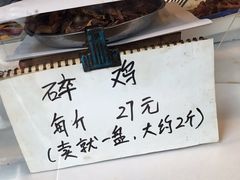 碎 鸡
每斤 27元
(卖就一盘,大约2斤)